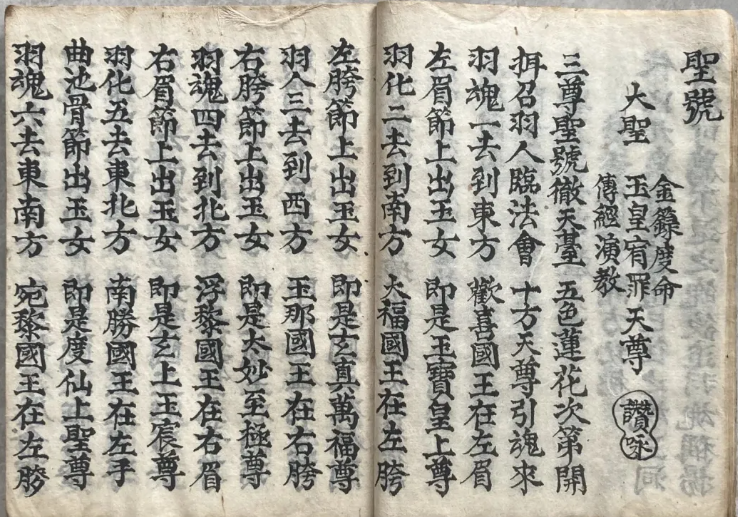 聖號
大聖 金籙度命 玉皇宥罪天尊 傳經演教 讚咏
三尊聖號徹天臺 五色蓮花次第開
拜召羽人臨法會 十方天尊引魂來
羽魂一去到東方 歡喜國王在左眉
左眉節上出玉女 即是玉寶皇上尊
羽化二去到南方 火福國王在左胯
左胯節上出玉女 即是玄真萬福尊
羽人三去到西方 玉那國王在右胯
右胯節上出玉女 即是太妙至極尊
羽魂四去到北方 浮黎國王在右眉
右眉節上出玉女 即是玄上玉宸尊
羽化五去東北方 南勝國王在左手
曲池骨節出玉女 即是度仙上聖尊
羽魂六去東南方 宛黎國王在左胯